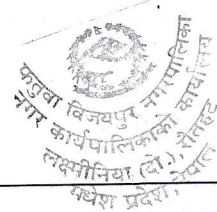 फतुवा विजयपुर नगरपालिका
नगर कार्यपालिकाको कार्यालय
लक्ष्मीनिया (दो.), रौतहट
मधेश प्रदेश, नेपाल